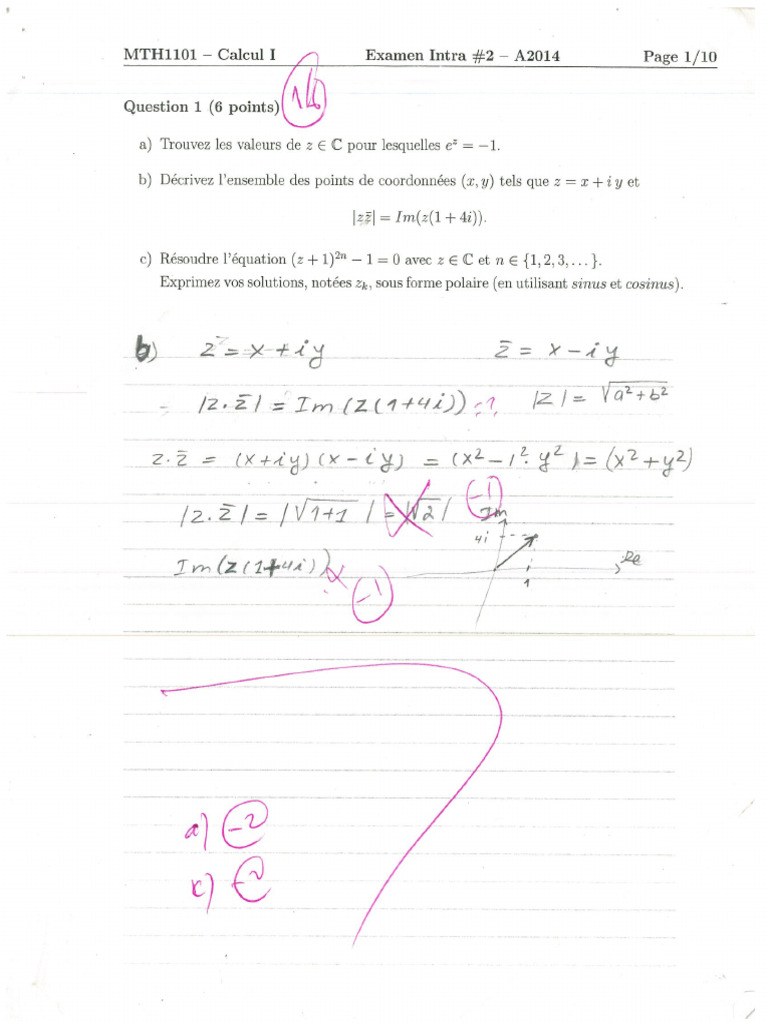 MTH1101 – Calcul I Examen Intra #2 – A2014 Page 1/10
Question 1 (6 points)
a) Trouvez les valeurs de z ∈ ℂ pour lesquelles e^z = −1.
b) Décrivez l'ensemble des points de coordonnées (x, y) tels que z = x + i y et
|zz̄| = Im(z(1 + 4i)).
c) Résoudre l'équation (z + 1)^{2n} − 1 = 0 avec z ∈ ℂ et n ∈ {1, 2, 3, . . . }.
Exprimez vos solutions, notées z_k, sous forme polaire (en utilisant sinus et cosinus).
b) z = x + iy z̄ = x − iy
|z·z̄| = Im(z(1+4i)) |z| = √(a²+b²)
z·z̄ = (x+iy)(x−iy) = (x²−i²·y²) = (x²+y²)
|z·z̄| = |√(1+1)| = |√2| −1
Im
4i
Im(z(1+4i)) Re
−1 1
a) −2
c) −2